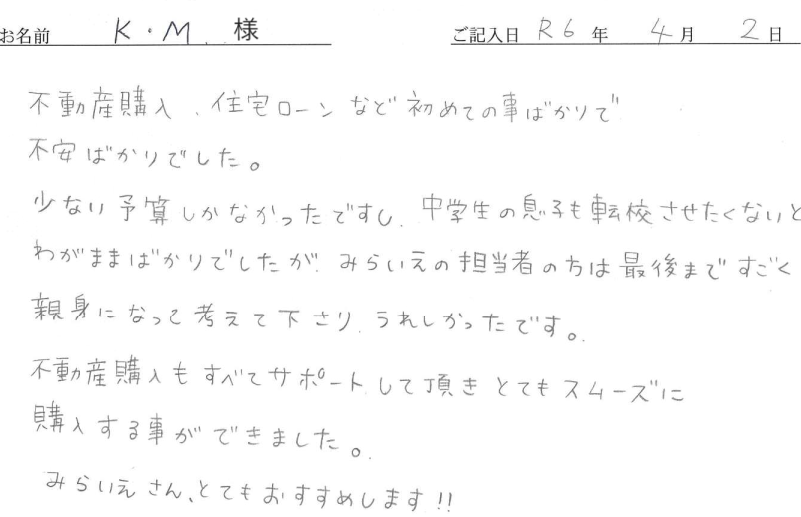 お名前 K・M 様 ご記入日 R6 年 4 月 2 日
不動産購入、住宅ローンなど初めての事ばかりで
不安ばかりでした。
少ない予算しかなかったですし、中学生の息子も転校させたくないと
わがままばかりでしたが、みらいえの担当者の方は最後まですごく
親身になって考えて下さり、うれしかったです。
不動産購入もすべてサポートして頂きとてもスムーズに
購入する事ができました。
みらいえさん、とてもおすすめします!!